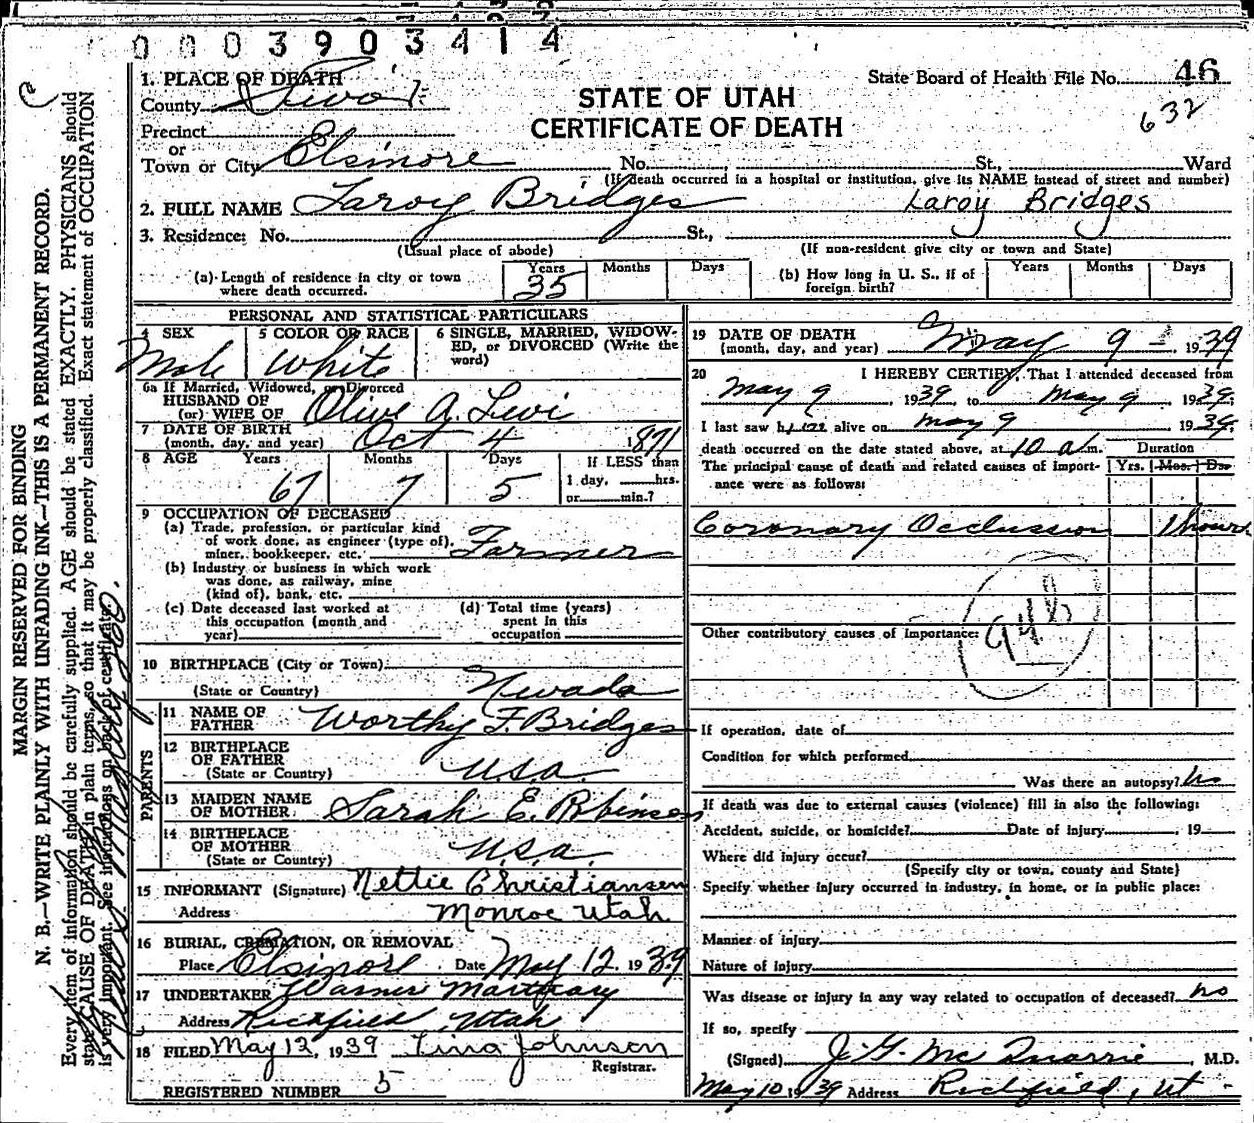 0003903414
1. PLACE OF DEATH
State Board of Health File No. 46
County Sevier
STATE OF UTAH
632
Precinct
CERTIFICATE OF DEATH
or
Town or City Elsinore No. St., Ward
(If death occurred in a hospital or institution, give its NAME instead of street and number)
2. FULL NAME Laroy Bridges Laroy Bridges
3. Residence: No. St.,
(Usual place of abode) (If non-resident give city or town and State)
(a) Length of residence in city or town where death occurred. Years 35 Months Days
(b) How long in U. S., if of foreign birth? Years Months Days
PERSONAL AND STATISTICAL PARTICULARS
4 SEX Male
5 COLOR OR RACE White
6 SINGLE, MARRIED, WIDOW-
ED, or DIVORCED (Write the
word)
6a If Married, Widowed, or Divorced
HUSBAND OF
(or) WIFE OF Olive A. Levi
7 DATE OF BIRTH
(month, day, and year) Oct 4 1871
8 AGE Years 67 Months 7 Days 5
If LESS than
1 day, hrs.
or min.?
9 OCCUPATION OF DECEASED
(a) Trade, profession, or particular kind
of work done, as engineer (type of),
miner, bookkeeper, etc. Farmer
(b) Industry or business in which work
was done, as railway, mine
(kind of), bank, etc.
(c) Date deceased last worked at
this occupation (month and
year)
(d) Total time (years)
spent in this
occupation
10 BIRTHPLACE (City or Town)
(State or Country) Nevada
PARENTS
11 NAME OF
FATHER Worthy F. Bridges
12 BIRTHPLACE
OF FATHER
(State or Country) U.S.A.
13 MAIDEN NAME
OF MOTHER Sarah E. Robinson
14 BIRTHPLACE
OF MOTHER
(State or Country) U.S.A.
15 INFORMANT (Signature) Nettie Christiansen
Address Monroe Utah
16 BURIAL, CREMATION, OR REMOVAL
Place Elsinore Date May 12, 1939
17 UNDERTAKER Warner Mortuary
Address Richfield Utah
18 FILED May 12, 1939 Tina Johnson
Registrar.
REGISTERED NUMBER 5
19 DATE OF DEATH
(month, day, and year) May 9 - 1939
20 I HEREBY CERTIFY, That I attended deceased from
May 9, 1939, to May 9, 1939;
I last saw him alive on May 9 1939;
death occurred on the date stated above, at 10 a.m. Duration
The principal cause of death and related causes of import-
ance were as follows: Yrs. Mos. Ds.
Coronary Occlusion 1 hours
94b
Other contributory causes of importance:
If operation, date of
Condition for which performed
Was there an autopsy? No
If death was due to external causes (violence) fill in also the following:
Accident, suicide, or homicide? Date of injury , 19
Where did injury occur?
(Specify city or town, county and State)
Specify whether injury occurred in industry, in home, or in public place:
Manner of injury
Nature of injury
Was disease or injury in any way related to occupation of deceased? no
If so, specify
(Signed) J. G. McQuarrie, M.D.
May 10 1939 Address Richfield, Ut.
MARGIN RESERVED FOR BINDING
N. B.—WRITE PLAINLY WITH UNFADING INK—THIS IS A PERMANENT RECORD.
Every item of information should be carefully supplied. AGE should be stated EXACTLY. PHYSICIANS should
state CAUSE OF DEATH in plain terms, so that it may be properly classified. Exact statement of OCCUPATION
is very important. See instructions on back of certificate.